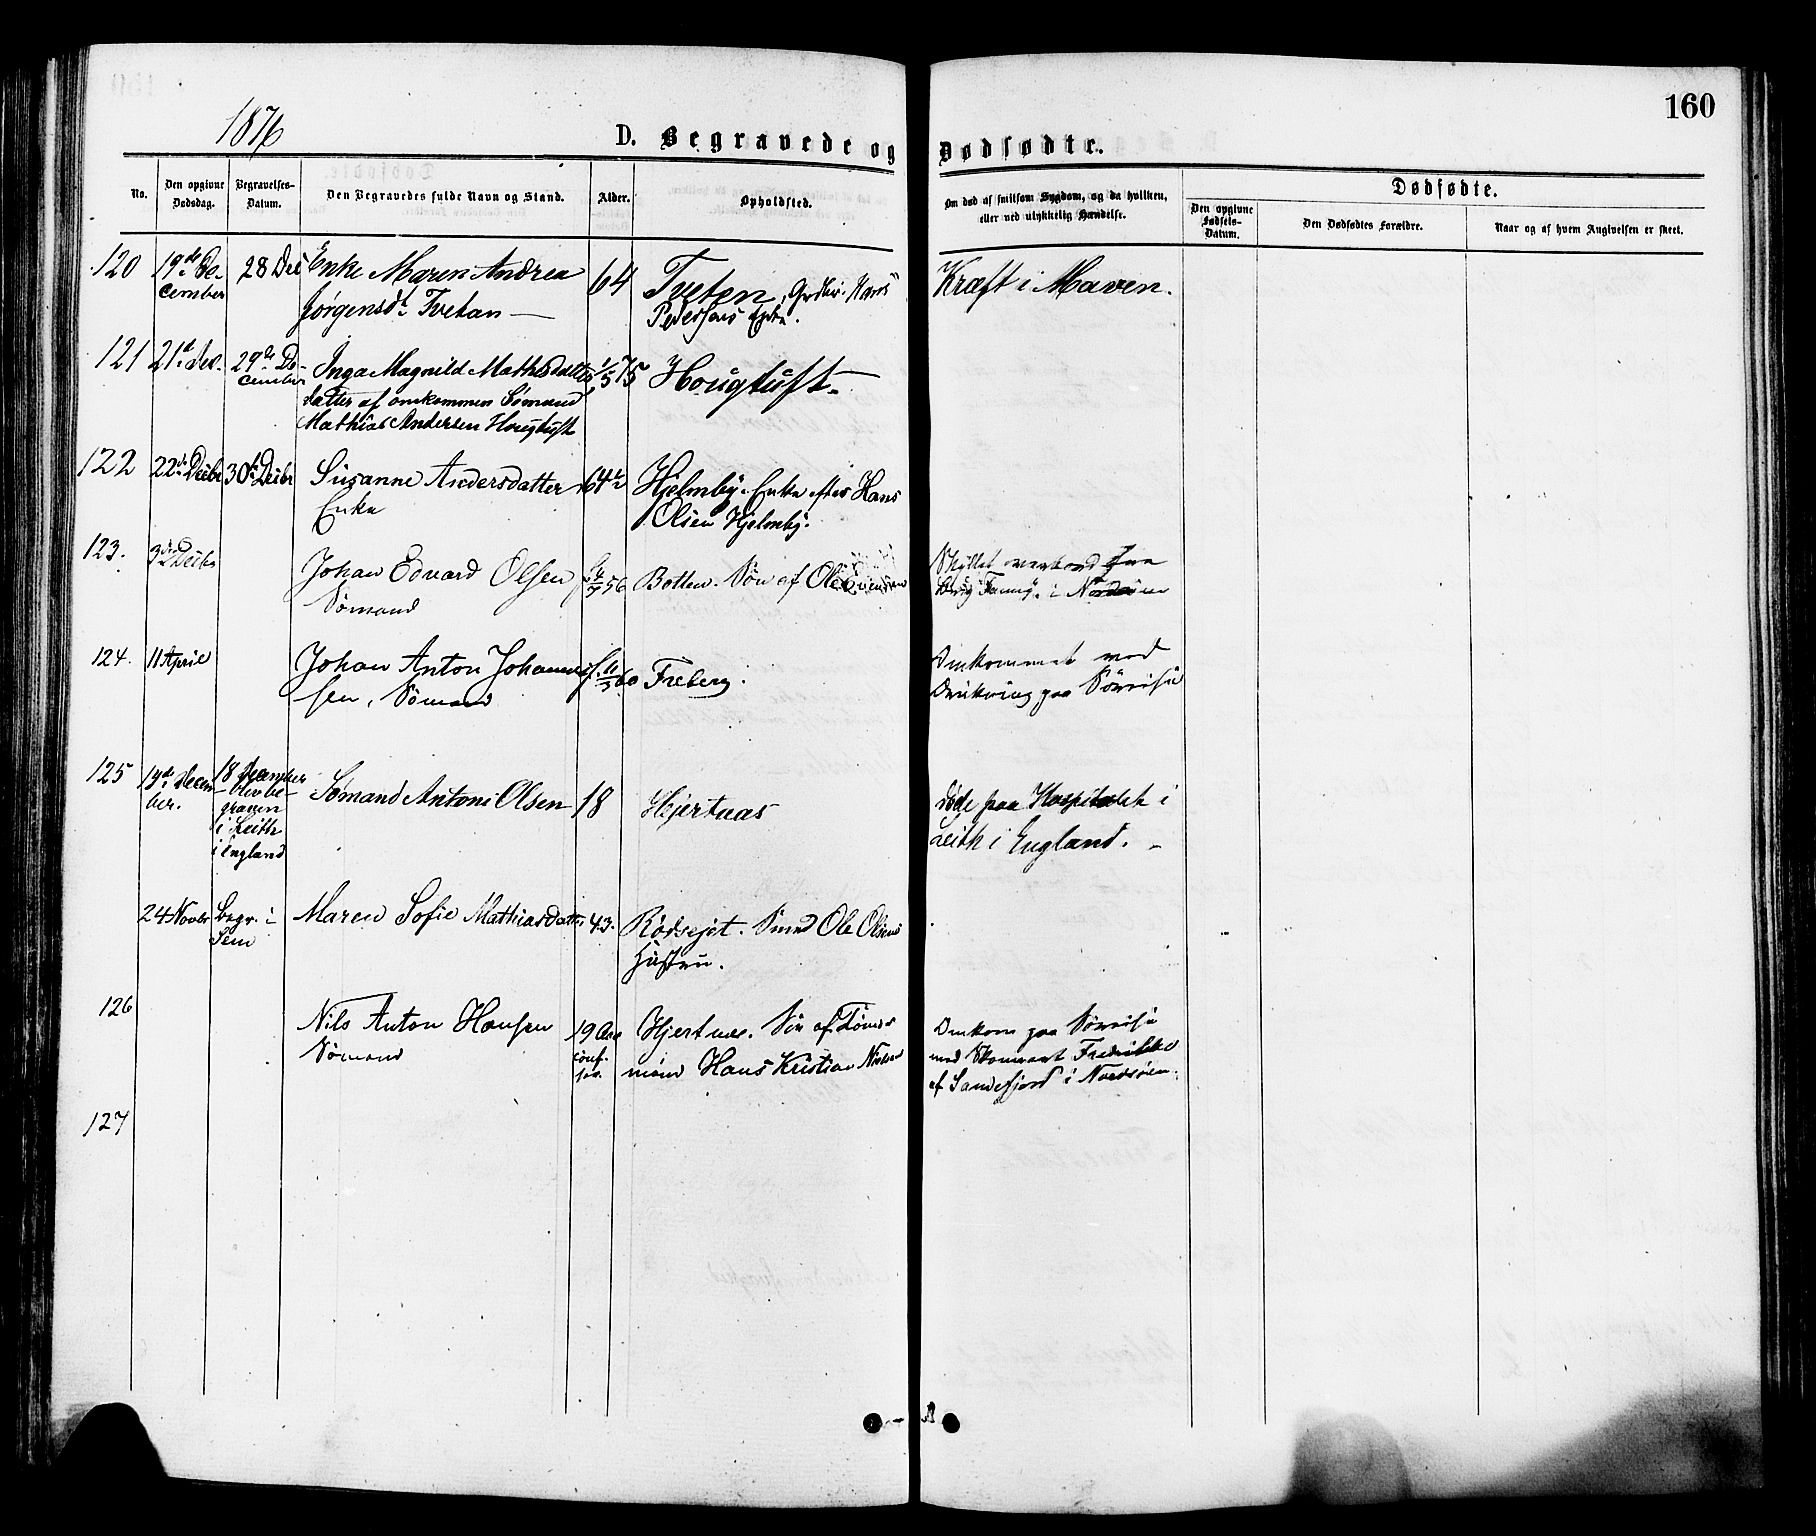 160
1876
D. Begravede og Dødfødte.
No.
Den opgivne Dødsdag.
Begravelses-Datum.
Den Begravedes fulde Navn og Stand.
Alder.
Opholdssted.
Om død af smitsom Sygdom, og da hvilken, eller ved ulykkelig Hændelse.
Dødfødte.
Den opgivne Fødsels-Datum.
Den Dødfødtes Forældre.
Naar og af hvem Angivelsen er skeet.
120 19de De- 28 Dec Enke Maren Andrea 64 Tveten, Hans Kræft i Maven.
cember Jørgensdr Tvetan Pedersens Enke.
121 21de Dec. 29de De- Inga Magnild Mathisdatter 1/5 75 Hougtuft
cember datter af omkommen Sømand
Mathias Andersen Hougtuft
122 22de Decbr 30te Decbr Susanne Andersdatter 64 Hjelmby. Enke efter Hans
Enke Olsen Hjelmby.
123. 3die Decbr Johan Edvard Olsen 56 Botten. Søn af Ole Skyllet overbord fra
Sømand Brig Fanny i Nordsøen
124. 11 April Johan Anton Johanne- f. 11/3 60 Freberg. Omkommet ved
sen, Sømand Drukning paa Søreise
125 December. 18 December Sømand Antoni Olsen 18 Hjertnæs døde paa Hospitalet i
blev be-
graven
i Leith
i England
Leith i England.
24 Novbr Begr. i Maren Sofie Mathiasdatter 43. Rødsejet. Smed Ole Olsens
Sem Hustru.
126 Nils Anton Hansen 19 Aar Hjertnes. Søn af Tømmer- Omkom paa Søreise
Sømand mand Hans Kristian Nielsen med Skonnert Fredrikke
af Sandefjord i Nordsøen.
127